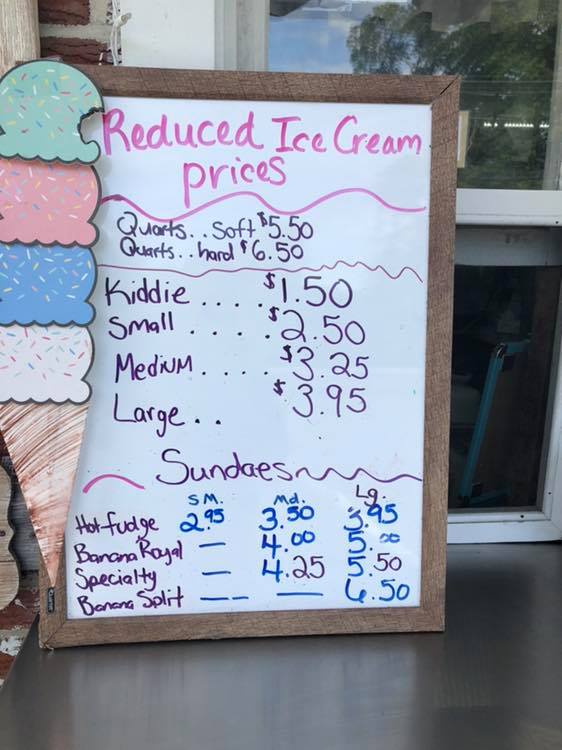 Reduced Ice Cream
prices
Quarts.. Soft $5.50
Quarts.. hard $6.50
Kiddie .... $1.50
Small ..... $2.50
Medium..... $3.25
Large.. $3.95
Sundaes
SM. Md. Lg.
Hot fudge 2.95 3.50 3.95
Banana Royal — 4.00 5.00
Specialty — 4.25 5.50
Banana Split —— — 6.50